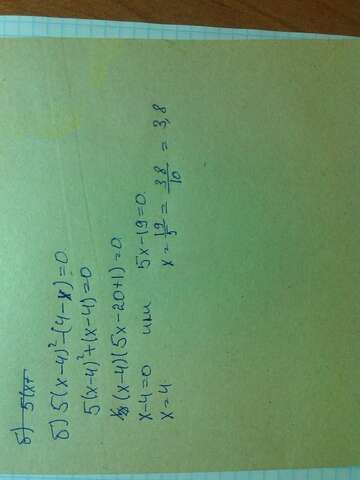 б) 5(x+
б) 5(x-4)²-(4-x)=0
5(x-4)²+(x-4)=0
(x-4)(5x-20+1)=0
x-4=0 или 5x-19=0
x=4 x=19/5=38/10=3,8